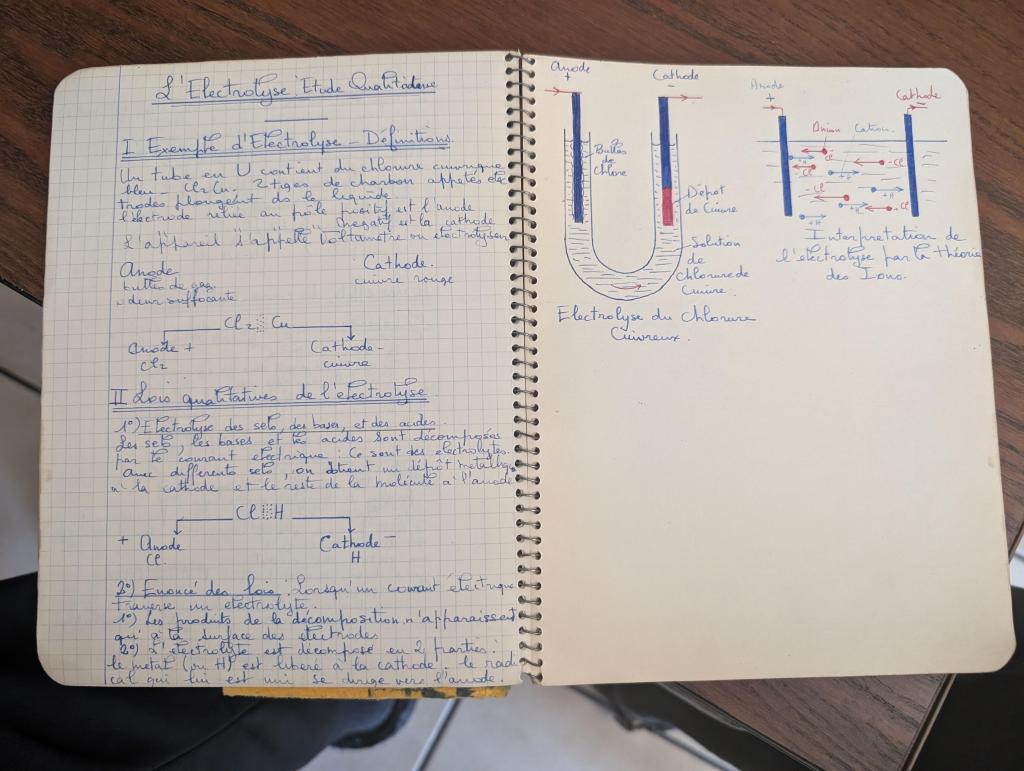 L'Electrolyse : Etude Qualitative
I Exemple d'Electrolyse - Définitions
Un tube en U contient du chlorure cuivrique
bleu - Cl2Cu. 2 tiges de charbon appelés élec
trodes plongent ds le liquide
L'électrode reliée au pôle positif est l'anode
" " " négatif est la cathode
L'appareil s'appelle Voltamètre ou électrolyseur
Anode Cathode.
bulles de gaz. cuivre rouge
odeur suffocante
Cl2 Cu
Anode + Cathode -
Cl2 cuivre
II Lois qualitatives de l'électrolyse
1°) Electrolyse des sels, des bases, et des acides.
Les sels, les bases et les acides sont décomposés
par le courant électrique : Ce sont des électrolytes.
Avec différents sels, on obtient un dépôt métallique
à la cathode et le reste de la molécule à l'anode
Cl H
+ Anode Cathode -
Cl H
2°) Enoncé des lois : Lorsqu'un courant électrique
traverse un électrolyte.
1°) Les produits de la décomposition n'apparaissent
qu'à la surface des électrodes
2°) L'électrolyte est décomposé en 2 parties :
le métal (ou H) est libéré à la cathode. le radi
cal qui lui est uni se dirige vers l'anode.
Anode
+
Cathode
-
Bulles
de
Chlore
Dépôt
de Cuivre
Solution
de
chlorure de
Cuivre.
Electrolyse du Chlorure
Cuivreux.
Anode
+
Cathode
-
Anion Cation.
- Cl
+ H
- Cl
- Cl
+ H
- Cl
+ H
+ H
+ H
- Cl
Interprétation de
l'électrolyse par la théorie
des Ions.